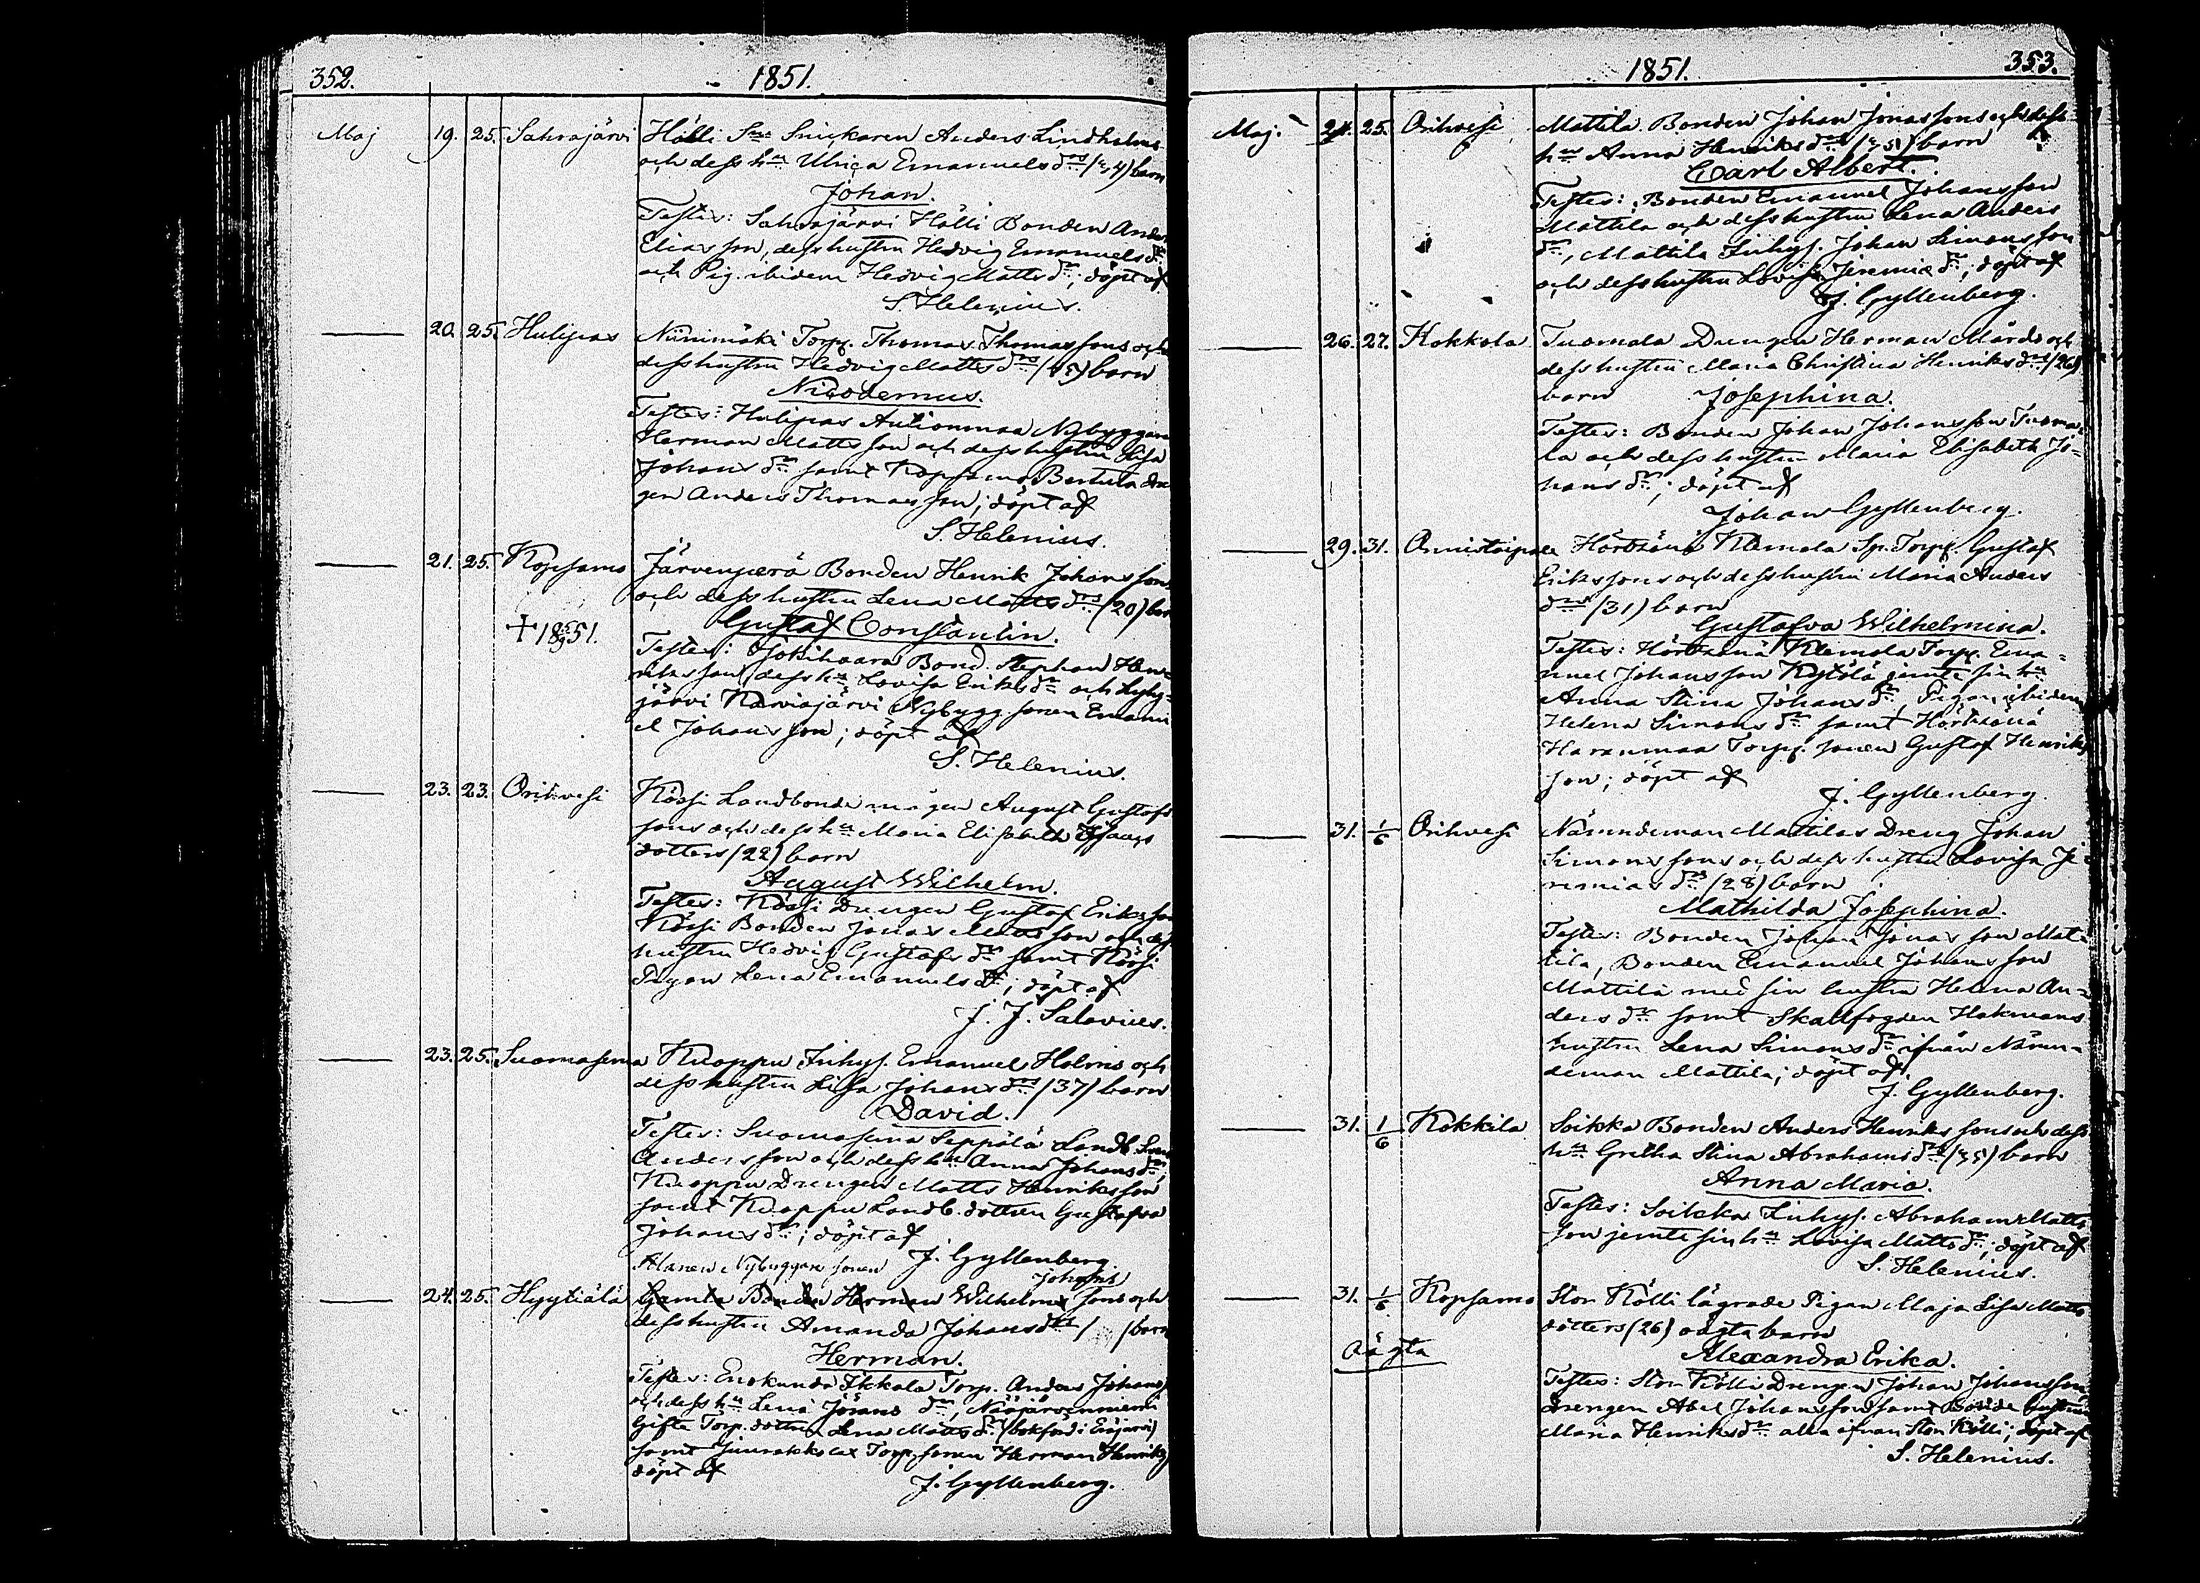 352. 1851.
Maj 19. 25. Sahrajärvi Hölli Snickaren Anders Lindholms
och dess h:u Ulrica Emanuels d:rs (34) barn
Johan.
Testes: Sahrajärvi Hölli Bonden Anders
Eliasson, dess hustru Hedvig Emanuels d:r
och Pig. ibidem Hedvig Matts d:r; döpt af
S. Helenius.
20. 25. Hulipas Niinimäki Torp. Thomas Thomassons och
dess hustru Hedvig Matts d:rs (45) barn
Nicodemus.
Testes: Hulipas Autionmaa Nybyggaren
Herman Mattsson och dess hustru Lisa
Johans d:r samt Kopsamo Berttula dren
gen Anders Thomasson; döpt af
S. Helenius.
21. 25. Kopsamo Järvenperä Bonden Henrik Johanssons
och dess hustru Lena Matts d:rs (20) barn
+ 1851. Gustaf Constantin.
Testes: Jokihaara Bond. Stephan Hen-
riksson, dess h:u Lovisa Eriks d:r och Lyly-
järvi Karviajärvi Nybygg. sonen Emanu
el Johansson; döpt af
S. Helenius.
23. 23. Orihvesi Kössi Landbonde mågen August Gustafs
sons och dess h:u Maria Elisabeth
dotters (22) barn
August Wilhelm.
Testes: Kössi Drengen Gustaf Eriksson
Kössi Bonden Jonas Mattsson och dess
hustru Hedvig Gustafs d:r samt Kössi
Pigan Lena Emanuels d:r; döpt af
J. J. Salovius.
23. 25. Suomasema Knappu Inhys. Emanuel Holms och
dess hustru Lisa Johans d:rs (37) barn
David.
Testes: Suomasema Seppälä Landb.
Andersson och dess h:u Anna Johans d:r,
Knappu Drengen Matts Henriksson
samt Knappu Landb. dottren Gustafva
Johans d:r; döpt af
J. Gyllenberg.
Nybyggare sonen
Johans
24. 25. Hyytiälä Gamla Bonden Herman Wilhelms sons och
dess hustru Amanda Johansd:rs / / barn
Herman.
Testes: Enokunda Ikkala Torp. Anders Johans
och dess h:u Lena Jörans d:r,
Gifta Torp. dottren Lena Matts d:r (bokförd i Eräjärvi)
samt Torp. sonen Herman Henriks
döpt af
J. Gyllenberg.
1851. 353.
Maj. 24. 25. Orihvesi Mattila Bonden Johan Jonassons och dess
h:u Anna Henriks d:rs (35) barn
Carl Albert.
Testes: Bonden Emanuel Johansson
Mattila och dess hustru Lena Anders
d:r, Mattila Inhys. Johan Simonsson
och dess hustru Lovisa Jeremie d:r; döpt af
J. Gyllenberg.
26. 27. Kokkola Tuomola Drengen Herman Mårds och
dess hustru Maria Christina Henriks d:rs (26)
barn Josephina.
Testes: Bonden Johan Johansson Tuomo-
la och dess hustru Maria Elisabeth Jo-
hans d:r; döpt af
Johan Gyllenberg.
29. 31. Onnistaipale Hörtsänä Klemola Sp. Torp. Gustaf
Erikssons och dess hustru Maria Anders
d:rs (31) barn
Gustafva Wilhelmina.
Testes: Hörtsänä Klemola Torp. Ema-
nuel Johansson Kytölä jemte sin h:u
Anna Stina Johans d:r, Pigan ibidem
Helena Simons d:r samt Hörtsänä
Haranmaa Torp. sonen Gustaf Henriks
son; döpt af
J. Gyllenberg.
31. 1/6 Orihvesi Nämndeman Mattilas Dreng Johan
Simonssons och dess hustru Lovisa Je-
remias d:rs (28) barn
Mathilda Josephina.
Testes: Bonden Johan Jonasson Mat-
tila, Bonden Emanuel Johansson
Mattila med sin hustru Helena An-
ders d:r samt Skallfogden Hakmans
hustru Lena Simons d:r ifrån Nämn-
deman Mattila; döpt af
J. Gyllenberg.
31. 1/6 Kokkila Soikka Bonden Anders Henrikssons och dess
h:u Gretha Stina Abrahams d:rs (35) barn
Anna Maria.
Testes: Soikka Inhys. Abraham Matts
son jemte sin h:u Lovisa Matts d:r; döpt af
S. Helenius.
31. 1/6 Kopsamo Stor Kölli lägrade Pigan Maja Lisa Matts
dotters (26) oägta barn
Oägta Alexandra Erika.
Testes: Stor Kölli Drengen Johan Johansson
Drengen Abel Johansson samt Bonde hustrun
Maria Henriks d:r alla ifrån Stor Kölli; döpt af
S. Helenius.